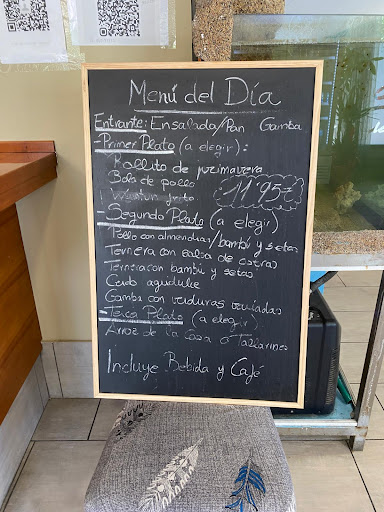 Menú del Día
Entrante: Ensalada/Pan Gamba
- Primer Plato (a elegir):
Rollito de primavera
Bola de pollo
11.95€
Wantun frito
- Segundo Plato (a elegir)
Pollo con almendras/bambú y setas
Ternera con salsa de ostras
Ternera con bambú y setas
Cerdo agridulce
Gambas con verduras variadas
- Tercer Plato (a elegir)
Arroz de la Casa o Tallarines
Incluye Bebida y Café